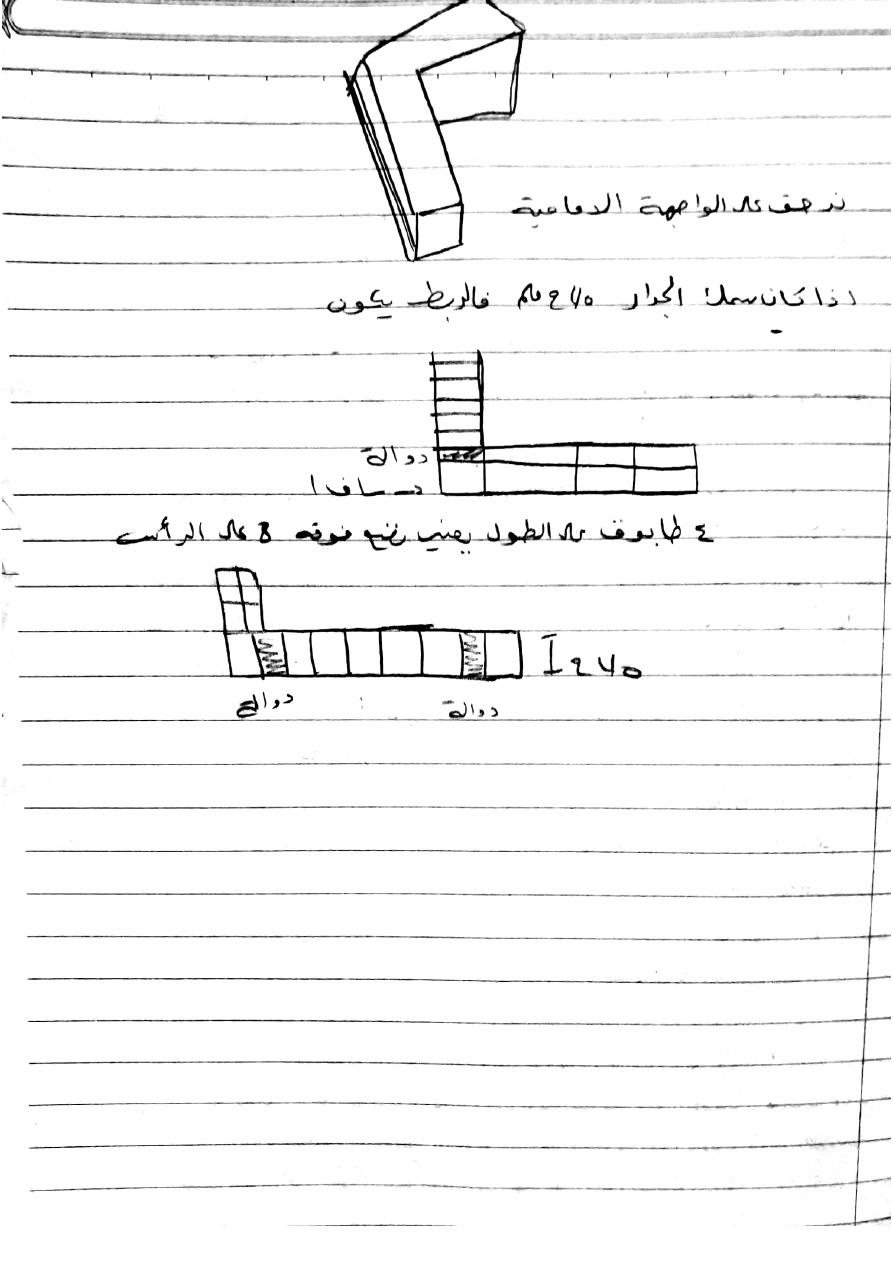 على الواجهة الامامية
اذا كان سمك الجدار ٢٧٥ ملم فالربط يكون
دوالة
ساف ١
٤ طابوق على الطول يعني نضع فوقه 8 على الرأس
٢٧٥
دوالة دوالة